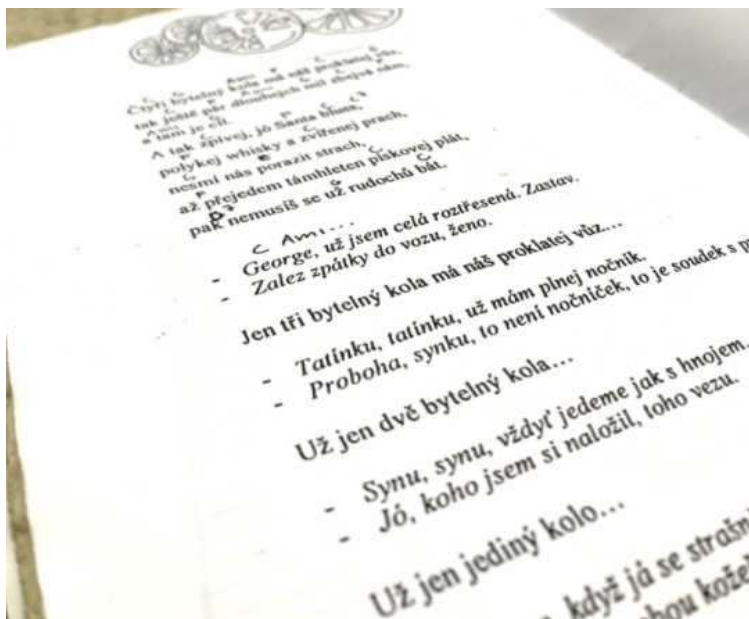 C G Ami F C G
Čtyři bytelný kola má náš proklatej vůz,
C F Ami C F
tak ještě pár dlouhejch mil zbejvá nám,
Ami G
a tam je cíl.
C F C C7
A tak zpívej, jó Santa blues,
F C
polykej whisky a zvířenej prach,
G
nesmí nás porazit strach,
F C
až přejedem támhleten pískovej plát,
D7 G C
pak nemusíš se už rudochů bát.
C Ami...
- George, už jsem celá roztřesená. Zastav.
- Zalez zpátky do vozu, ženo.
Jen tři bytelný kola má náš proklatej vůz...
- Tatínku, tatínku, už mám plnej nočník.
- Proboha, synku, to není nočníček, to je soudek s p
Už jen dvě bytelný kola...
- Synu, synu, vždyť jedeme jak s hnojem.
- Jó, koho jsem si naložil, toho vezu.
Už jen jediný kolo...
, když já se strašn
kože